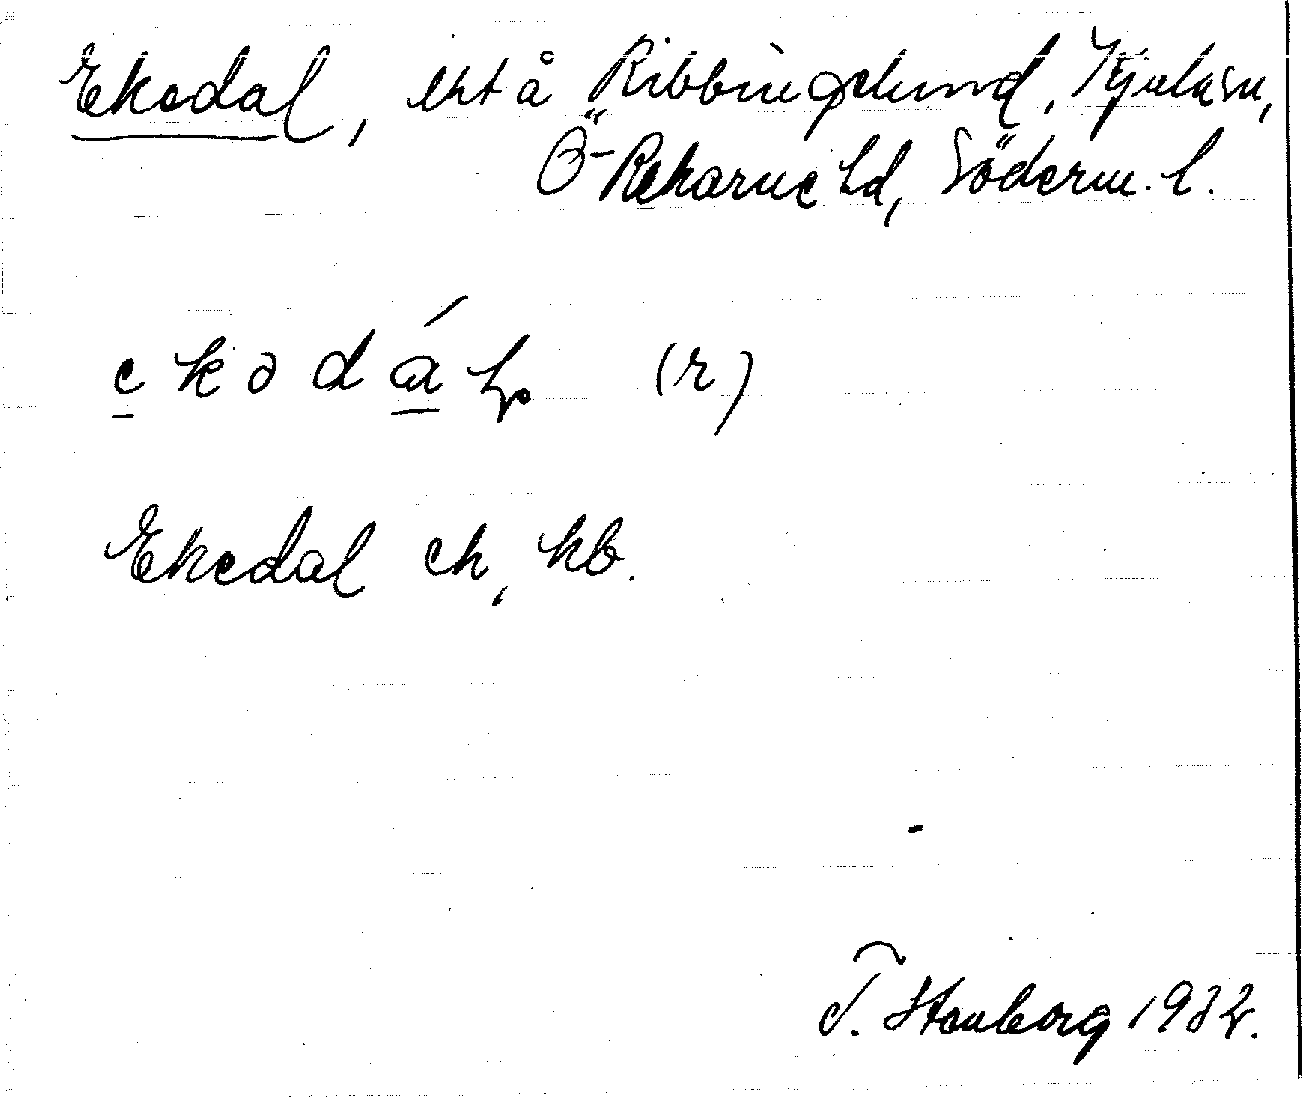 Ekedal, lht å Ribbingelund, Kjula sn,
Ö-Rekarne hd, Söderm. l.
ekədá̱l (r)
Ekedal ek, kb.
T. Stenborg 1932.